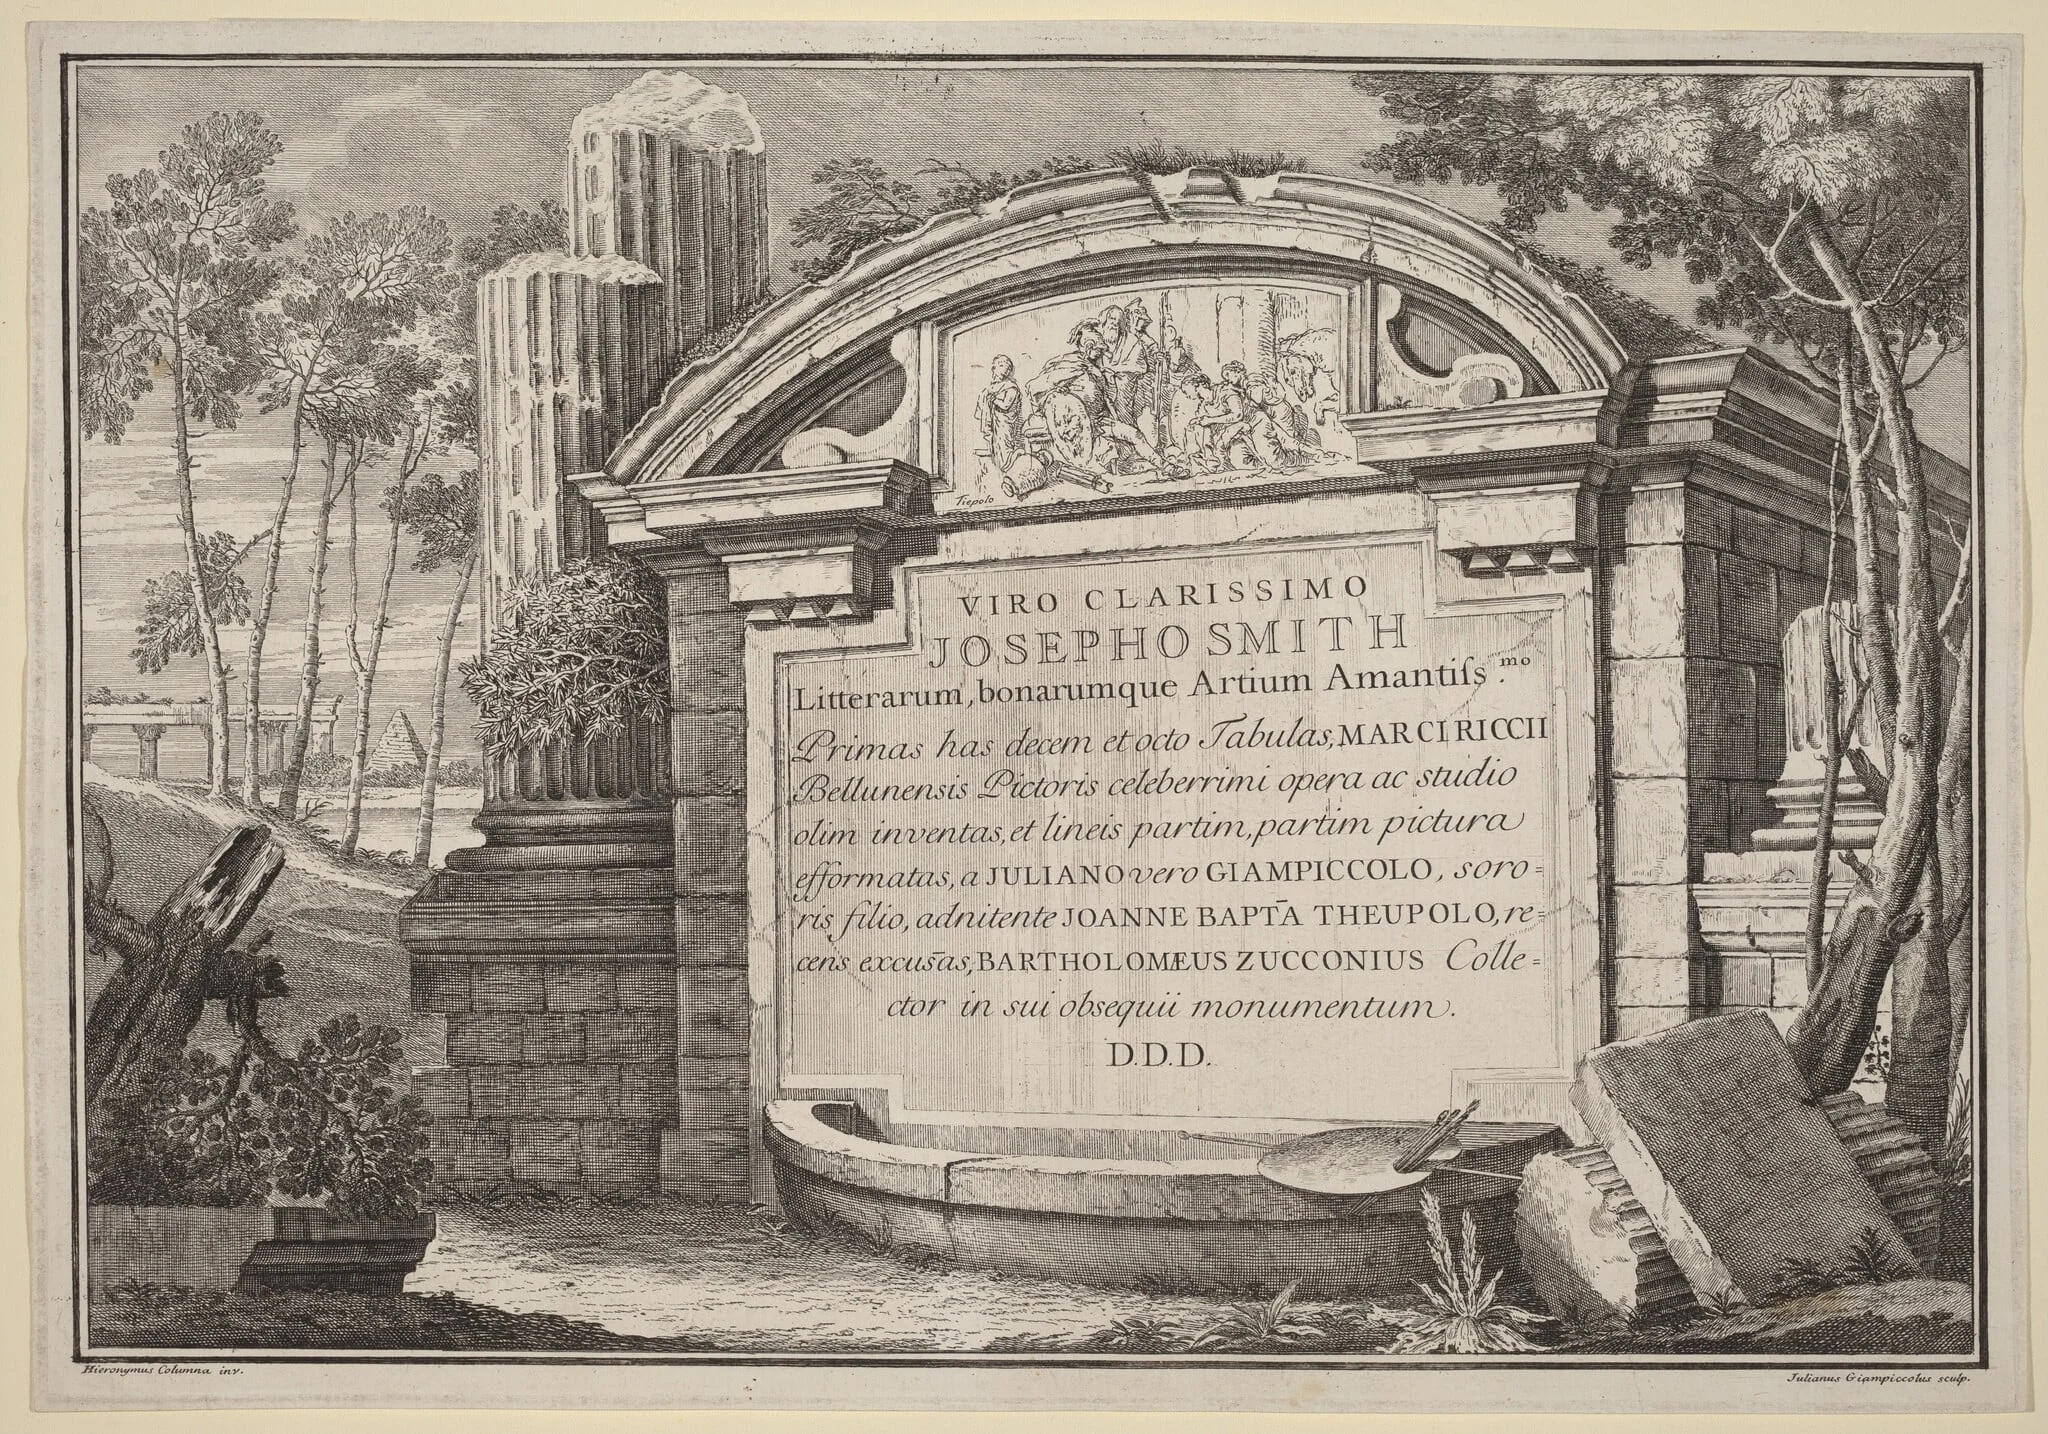 Tiepolo
VIRO CLARISSIMO
JOSEPHO SMITH
Litterarum, bonarumque Artium Amantiſs.mo
Primas has decem et octo Tabulas, MARCI RICCII
Bellunensis Pictoris celeberrimi opera ac studio
olim inventas, et lineis partim, partim pictura
efformatas, a JULIANO vero GIAMPICCOLO, soro=
ris filio, adnitente JOANNE BAPTA̅ THEUPOLO, re=
cens excus̅as, BARTHOLOMÆUS ZUCCONIUS Colle=
ctor in sui obsequii monumentum.
D.D.D.
Hieronymus Columna inv.
Julianus Giampiccolus sculp.